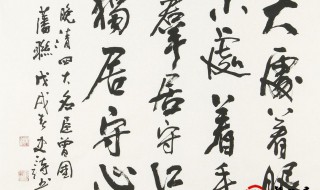 大處着眼
小處着手
羣居守口
獨居守心
晚清四大名臣曾國
藩聯戊戌